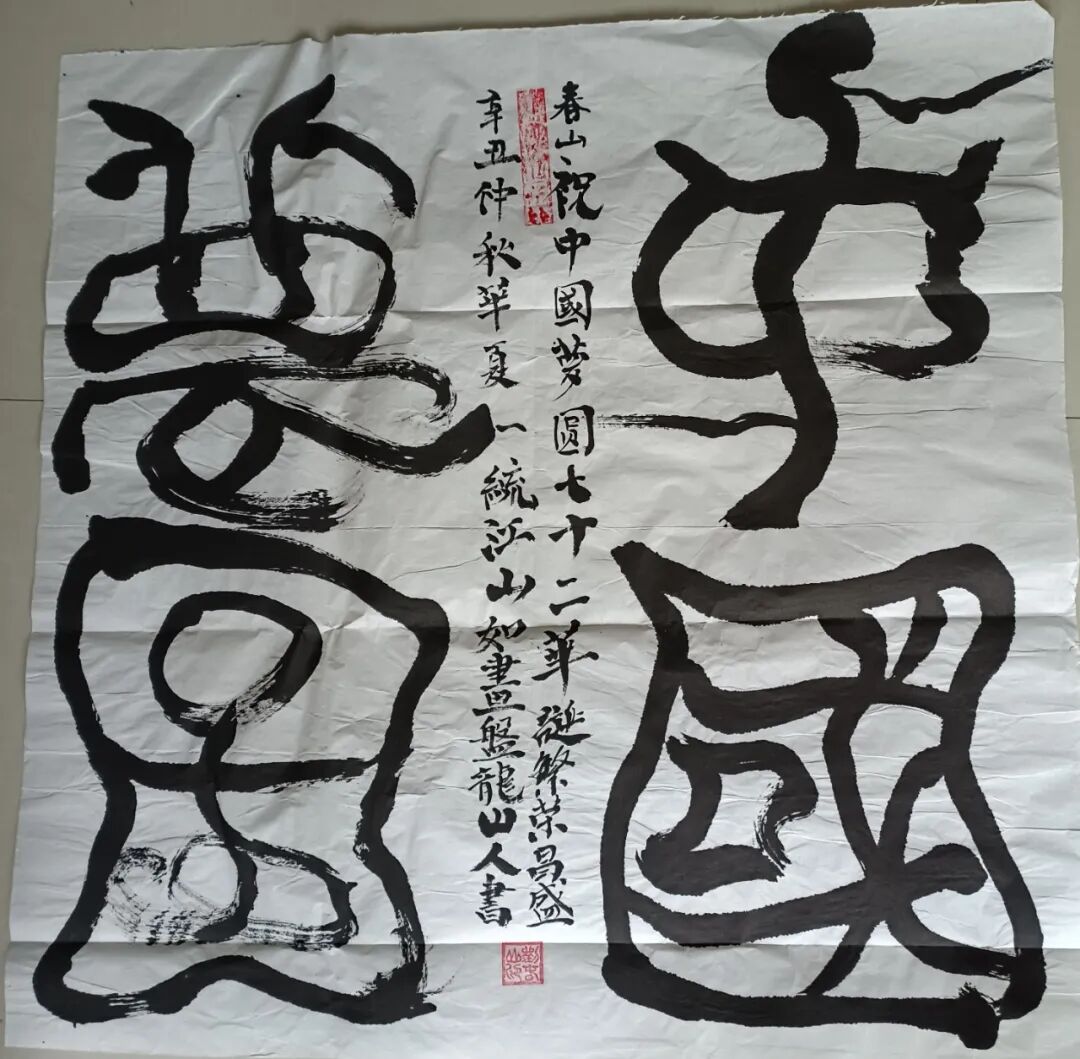 中國
春山、祝中國夢圓七十二華誕繁榮昌盛
辛丑仲秋華夏一統江山如畫盤龍山人書
夢圓